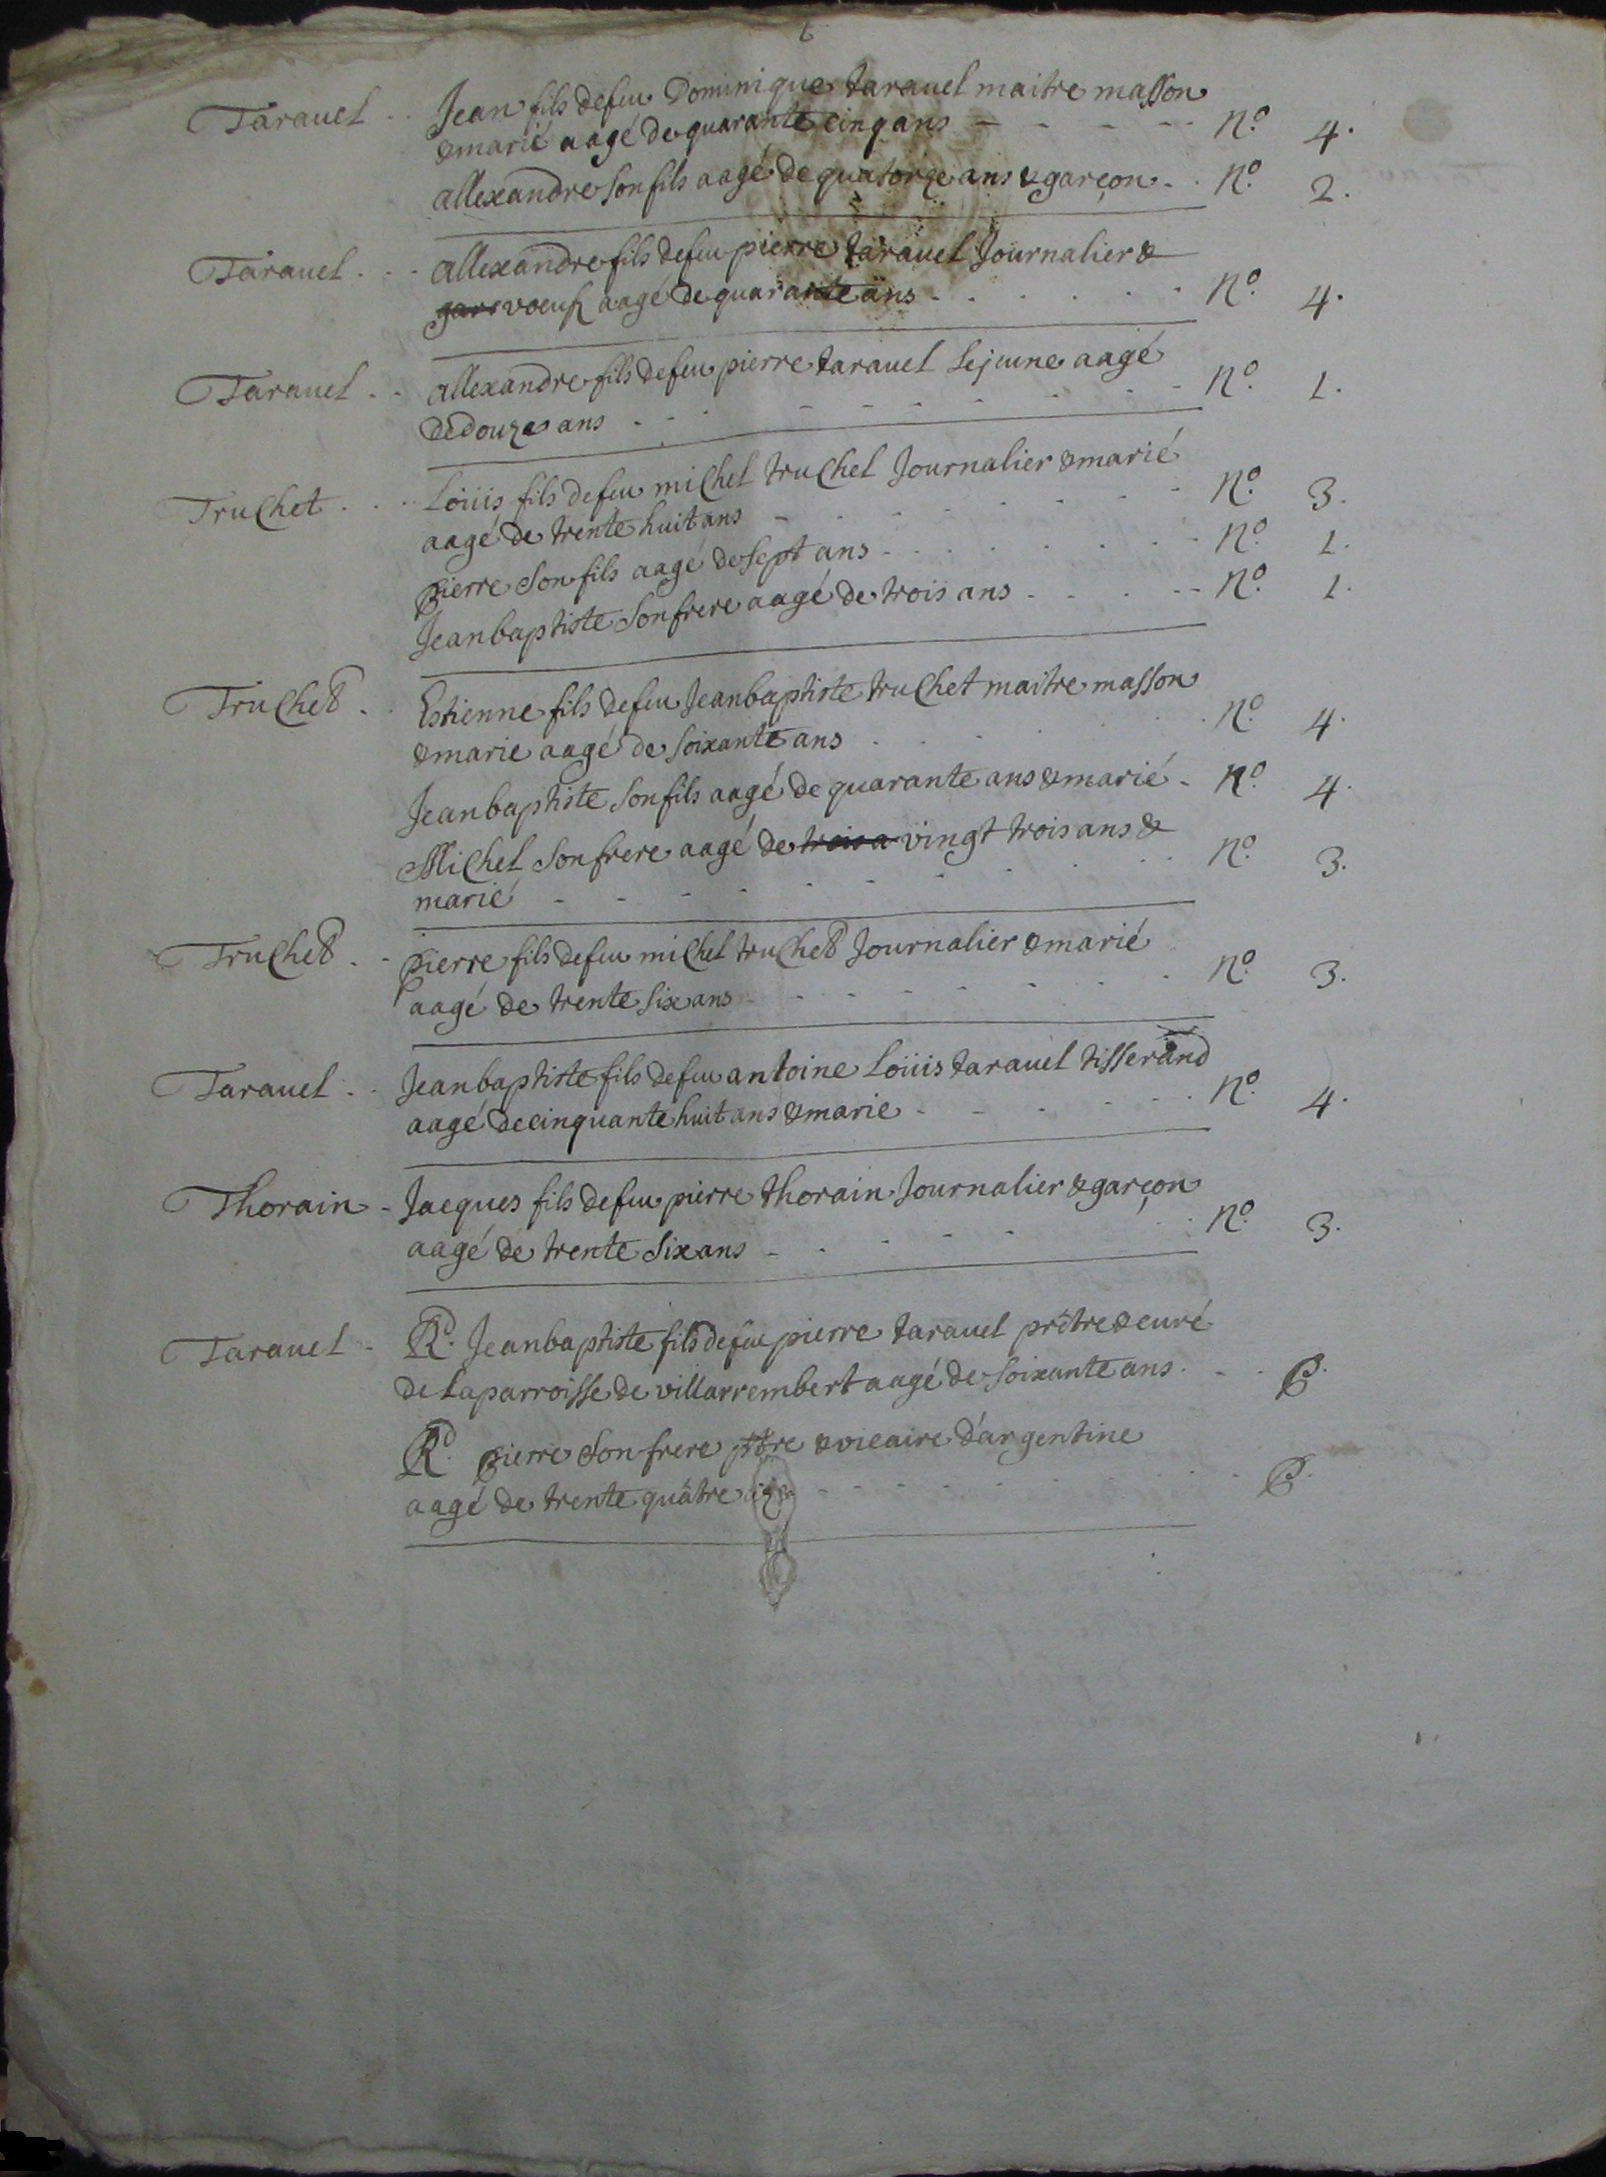 Tarauel . . Jean fils defeu Dominique tarauel maitre masson
& marié aagé de quarante cinq ans - - - - - - N.o 4.
allexandre son fils aagé de quatorze ans & garçon . . N.o 2.
Tarauel . . . allexandre fils defeu pierre tarauel Journalier &
gars voeuf aagé de quarante ans . . . . . . N.o 4.
Tarauel . . allexandre fils defeu pierre tarauel Lejeune aagé
de douze ans . - . - - - - - - - N.o 1.
Truchet . . . . Loüis fils defeu michel truchet Journalier & marié
aagé de trente huit ans - - - - - - - N.o 3.
pierre son fils aagé de sept ans - . . . . . . . N.o 1.
Jeanbaptiste son frere aagé de trois ans - . . . - - N.o 1.
Truchet . . Estienne fils defeu Jeanbaptiste truchet maitre masson
& marie aagé de soixante ans . . . . . . N.o 4.
Jeanbaptiste son fils aagé de quarante ans & marié - N.o 4.
Michel son frere aagé de trois a vingt trois ans &
marié - - - - - - - - . . . N.o 3.
Truchet . - pierre fils defeu michel truchet Journalier & marié
aagé de trente six ans - - - - - - . . N.o 3.
Tarauel . . Jeanbaptiste fils defeu antoine Loüis tarauel tisserand
aagé de cinquante huit ans & marie - - - . . . N.o 4.
Thorain - Jacques fils defeu pierre thorain Journalier & garçon
aagé de trente six ans - . - - - . . N.o 3.
Tarauel - Rd. Jeanbaptiste fils defeu pierre tarauel prêtre & curé
de Laparroisse de villarrembert aagé de soixante ans . - . P.
Rd. pierre son frere ptre & vicaire d'argentine
aagé de trente quâtre ans - - - - - - - - P.